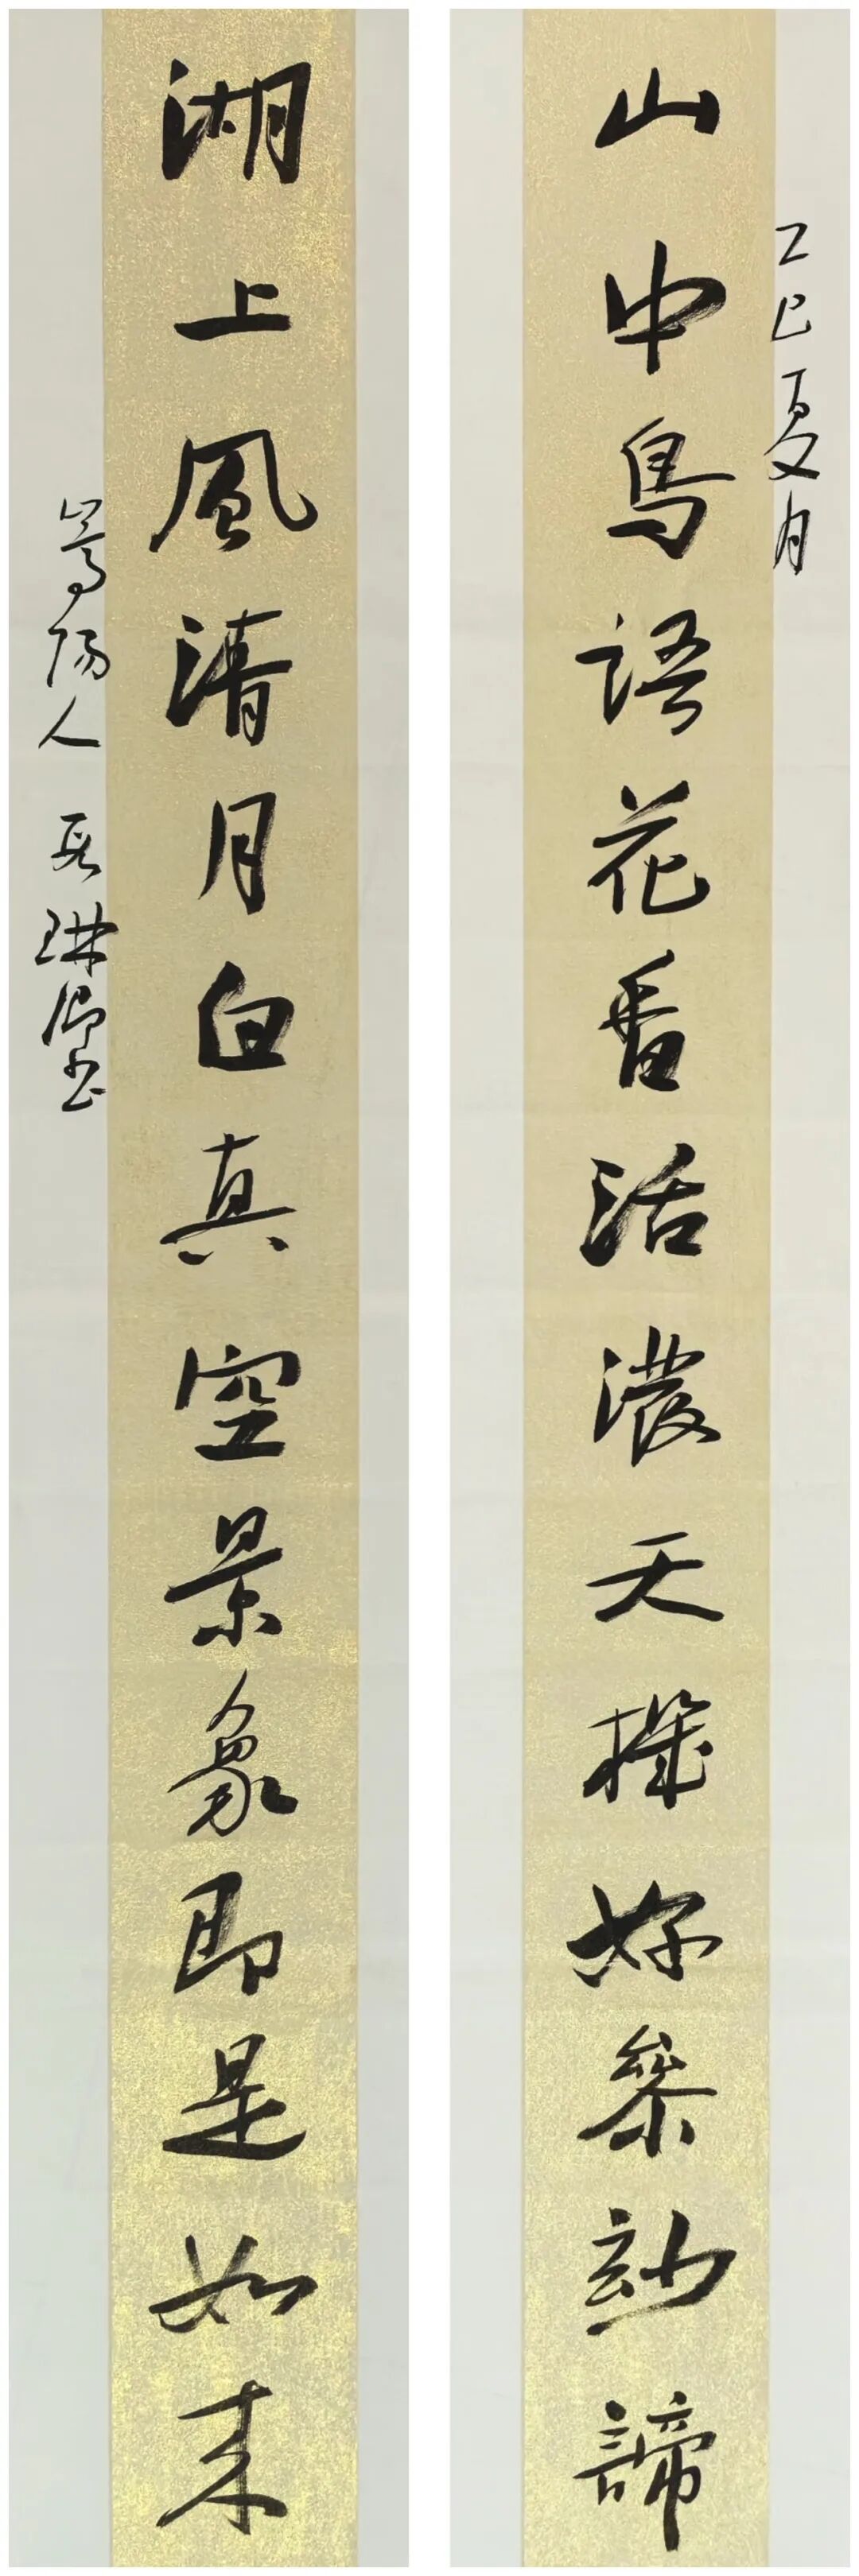 乙巳夏月
山中鳥語花香活潑天機好參玅諦
湖上風清月白真空景象即是如來
嵩陽人 琳